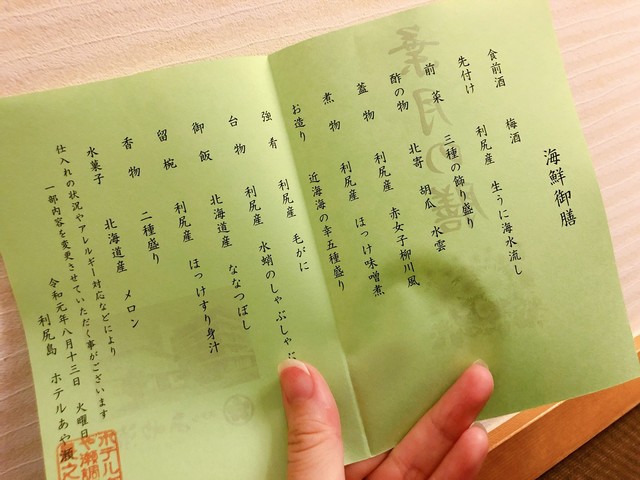 海鮮御膳
食前酒 梅酒
先付け 利尻産 生うに海水流し
前菜 三種の飾り盛り
酢の物 北寄 胡瓜 水雲
蓋物 利尻産 赤女子柳川風
煮物 利尻産 ほっけ味噌煮
お造り 近海海の幸五種盛り
強肴 利尻産 毛がに
台物 利尻産 水蛸のしゃぶしゃぶ
御飯 北海道産 ななつぼし
留椀 利尻産 ほっけすり身汁
香物 二種盛り
水菓子 北海道産 メロン
仕入れの状況やアレルギー対応などにより
一部内容を変更させていただく事がございます
令和元年八月十三日 火曜日
利尻島 ホテルあや瀬
葉月の膳